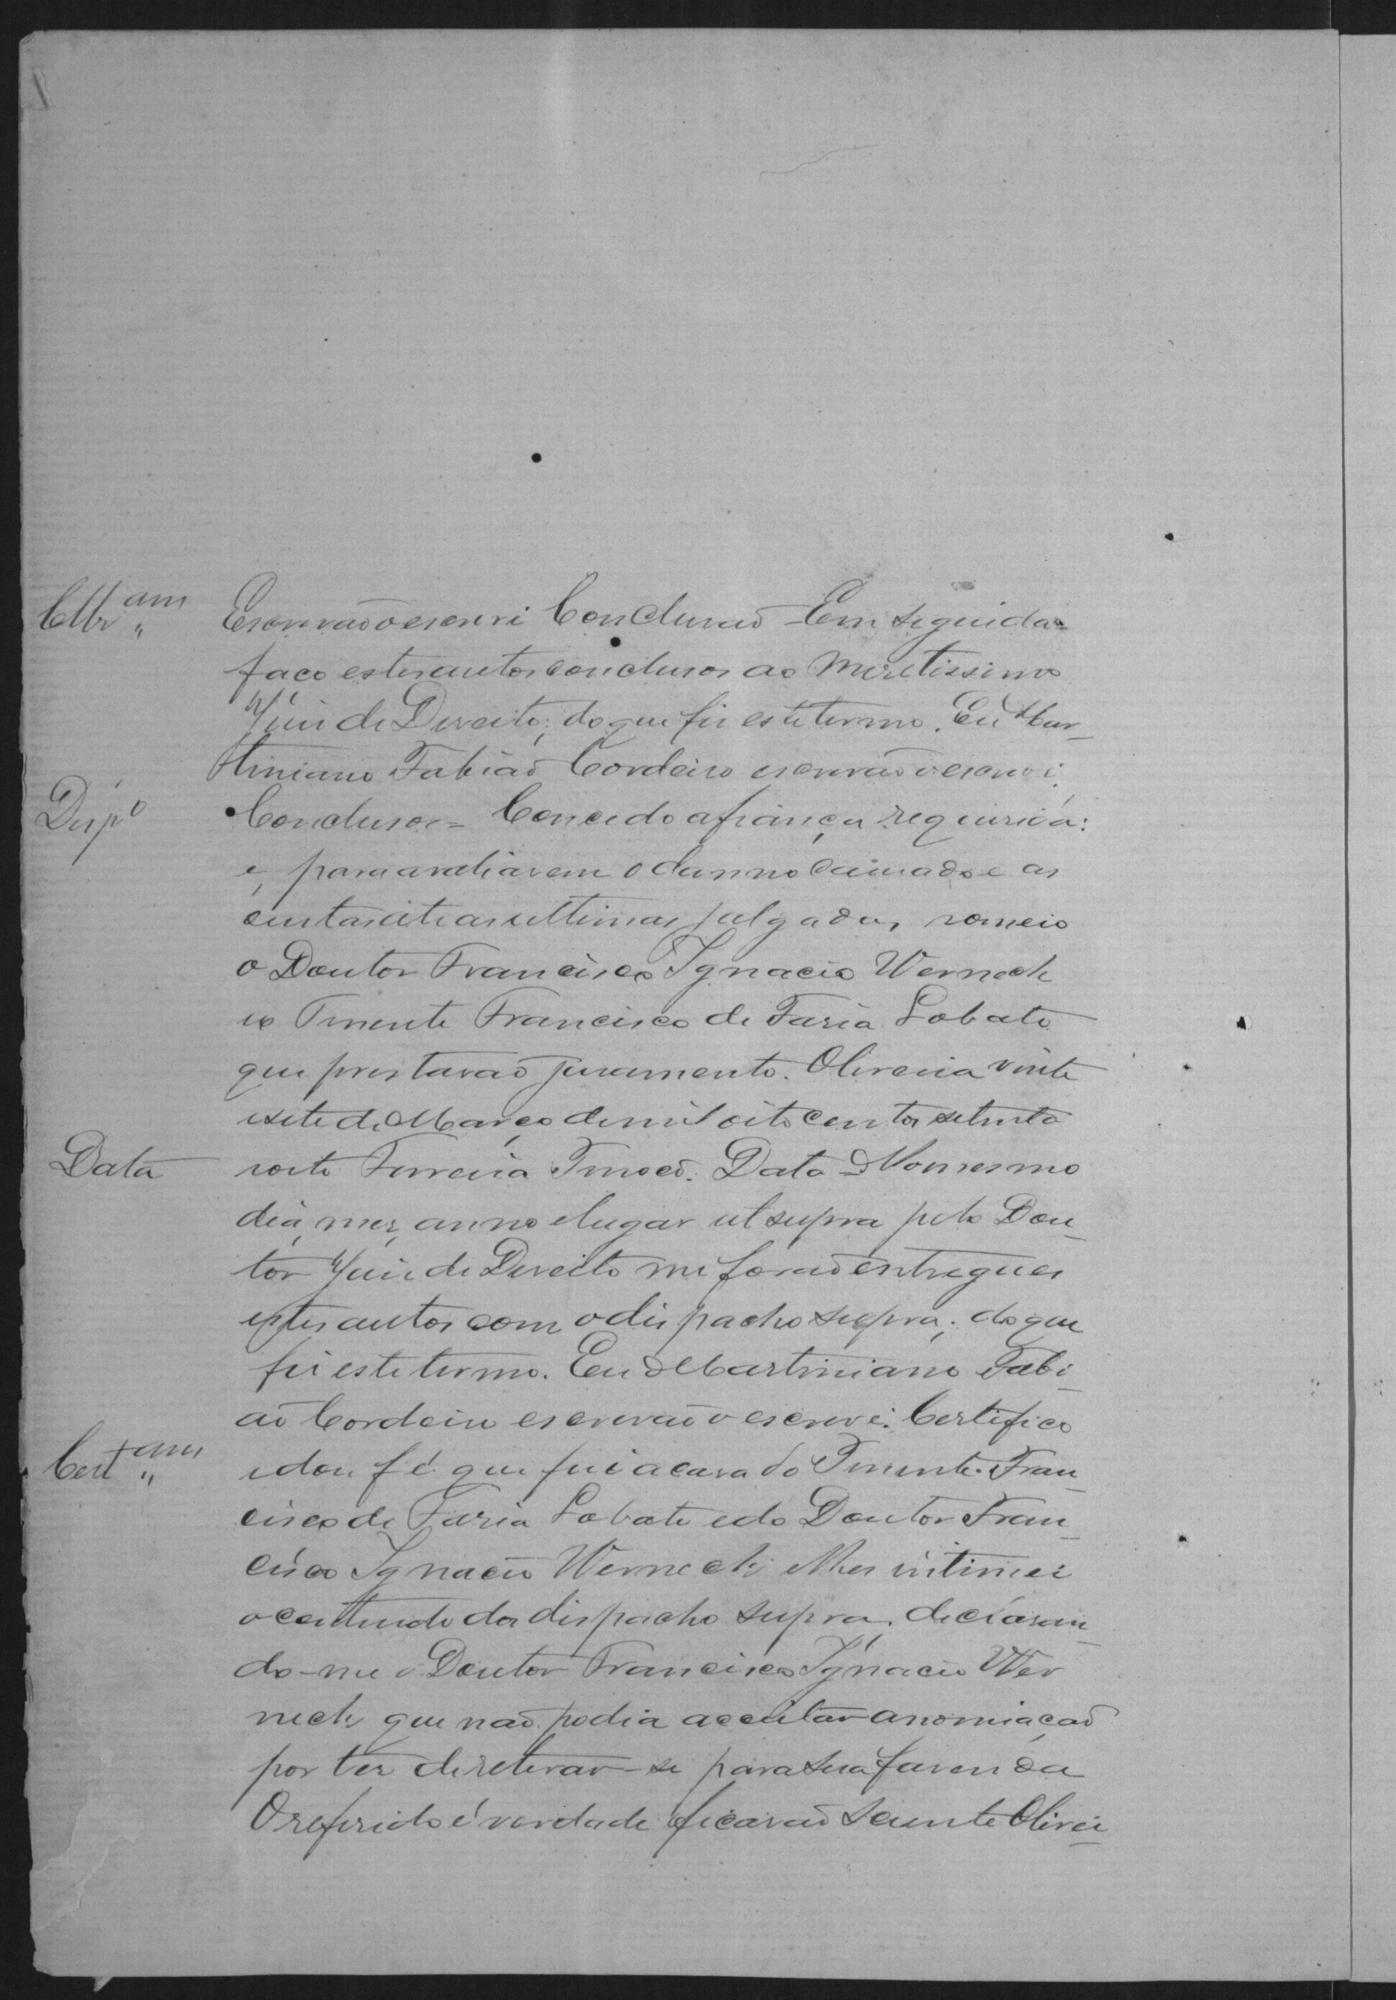 Cllz.am Escrivão o escrevi Conclusaõ Em seguida
faço estes autos conclusos ao Meretissimo
Juiz de Direito, do que fiz este termo. Eu Mar-
tiniano Fabiaõ Cordeiro escrivão o escrevi.
Desp.o Conclusos = Concedo a fiança requirida:
e, para avaliarem o damno causado e as
custas até as ultimas julgadas, nomeio
o Doutor Francisco Ignacio Werneck
e o Tenente Francisco de Faria Lobato
que prestaraõ juramento. Oliveira vinte
e sete de Março de mil oito centos setenta
e oito Ferreira Tinoco.
Data Data No mesmo
dia, mez, anno e lugar ut supra pelo Dou-
tor Juiz de Direito me foraõ entregues
estes autos com o dispacho supra; do que
fiz este termo. Eu Martiniano Fabi-
aõ Cordeiro escrivão o escrevi. Certifico
Cert.am e dou fé que fui a casa do Tenente Fran-
cisco de Faria Lobato e do Doutor Fran-
cisco Ignacio Werneck e lhes intimei
o conteudo do dispacho supra, declaran-
do-me o Doutor Francisco Ignacio Wer
neck que naõ podia acceitar a nomiaçaõ
por ter de retirar-se para sua fazenda
O referido é verdade ficaraõ sciente Olivei-